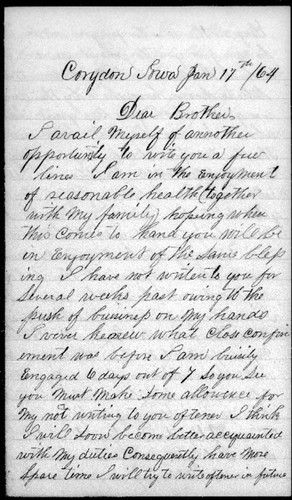 Corydon Iowa Jan 17th /64
Dear Brother
I avail Myself of annother
opportunity to write you a few
lines I am in the Enjoyment
of reasonable health (together
with My family) hoping when
this comes to hand you will be
in Enjoyment of the same bless
ing I have not writen to you for
several weeks past owing to the
push of business on My hands
I never knew what close confin
ement was before I am busily
Engaged 6 days out of 7 so you see
you Must Make some allowence for
My not writing to you oftener I think
I will soon become better acquainted
with My duties Consequently have More
spare time I will try to write oftener in future